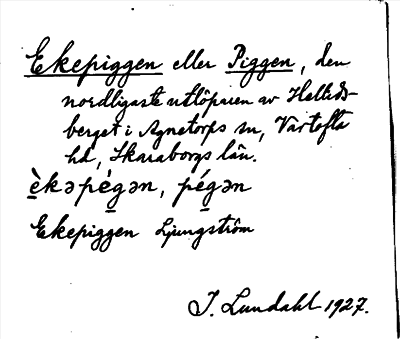 Ekepiggen eller Piggen, den
nordligaste utlöparen av Halleds-
berget i Agnetorps sn, Vartofta
hd, Skaraborgs län.
èkəpégən, pégən
Ekepiggen Ljungström
I. Lundahl 1927.